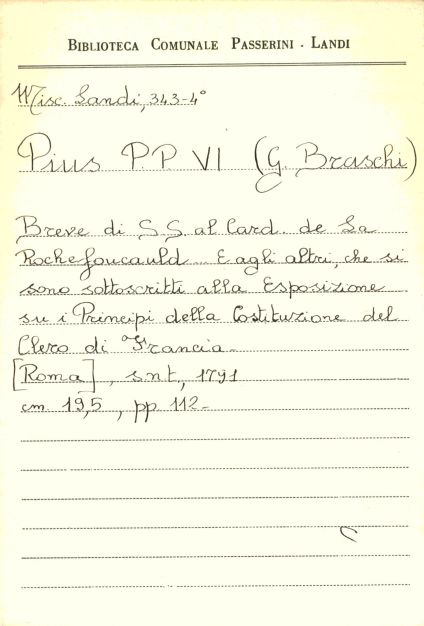 BIBLIOTECA COMUNALE PASSERINI - LANDI
Misc. Landi, 343-4°
Pius P.P. VI (G. Braschi)
Breve di S.S. al Card. de La
Rochefoucauld E agli altri, che si
sono sottoscritti alla Esposizione
su i Principi della Costituzione del
Clero di Francia.
[Roma], s.n.t., 1791
cm. 19,5, pp. 112.